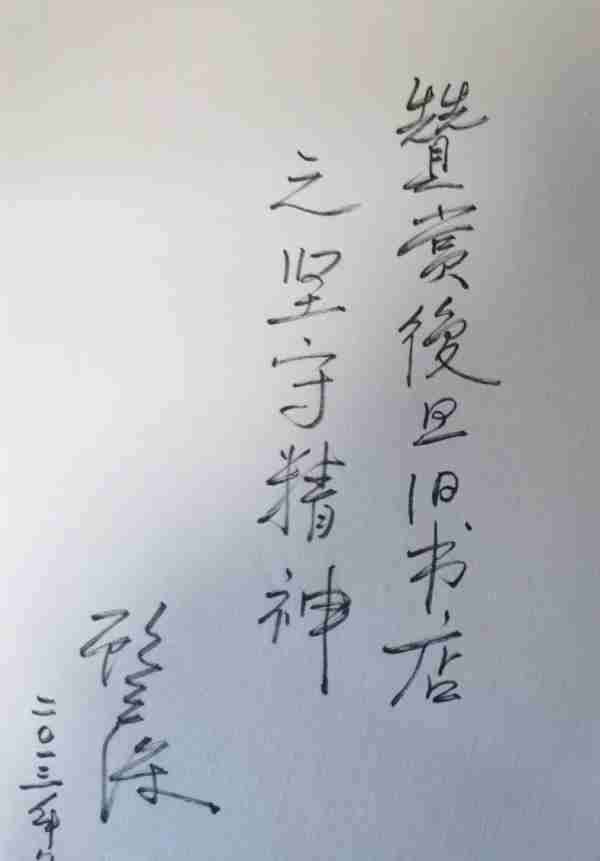 赞赏復旦旧书店
之坚守精神
二〇二三年